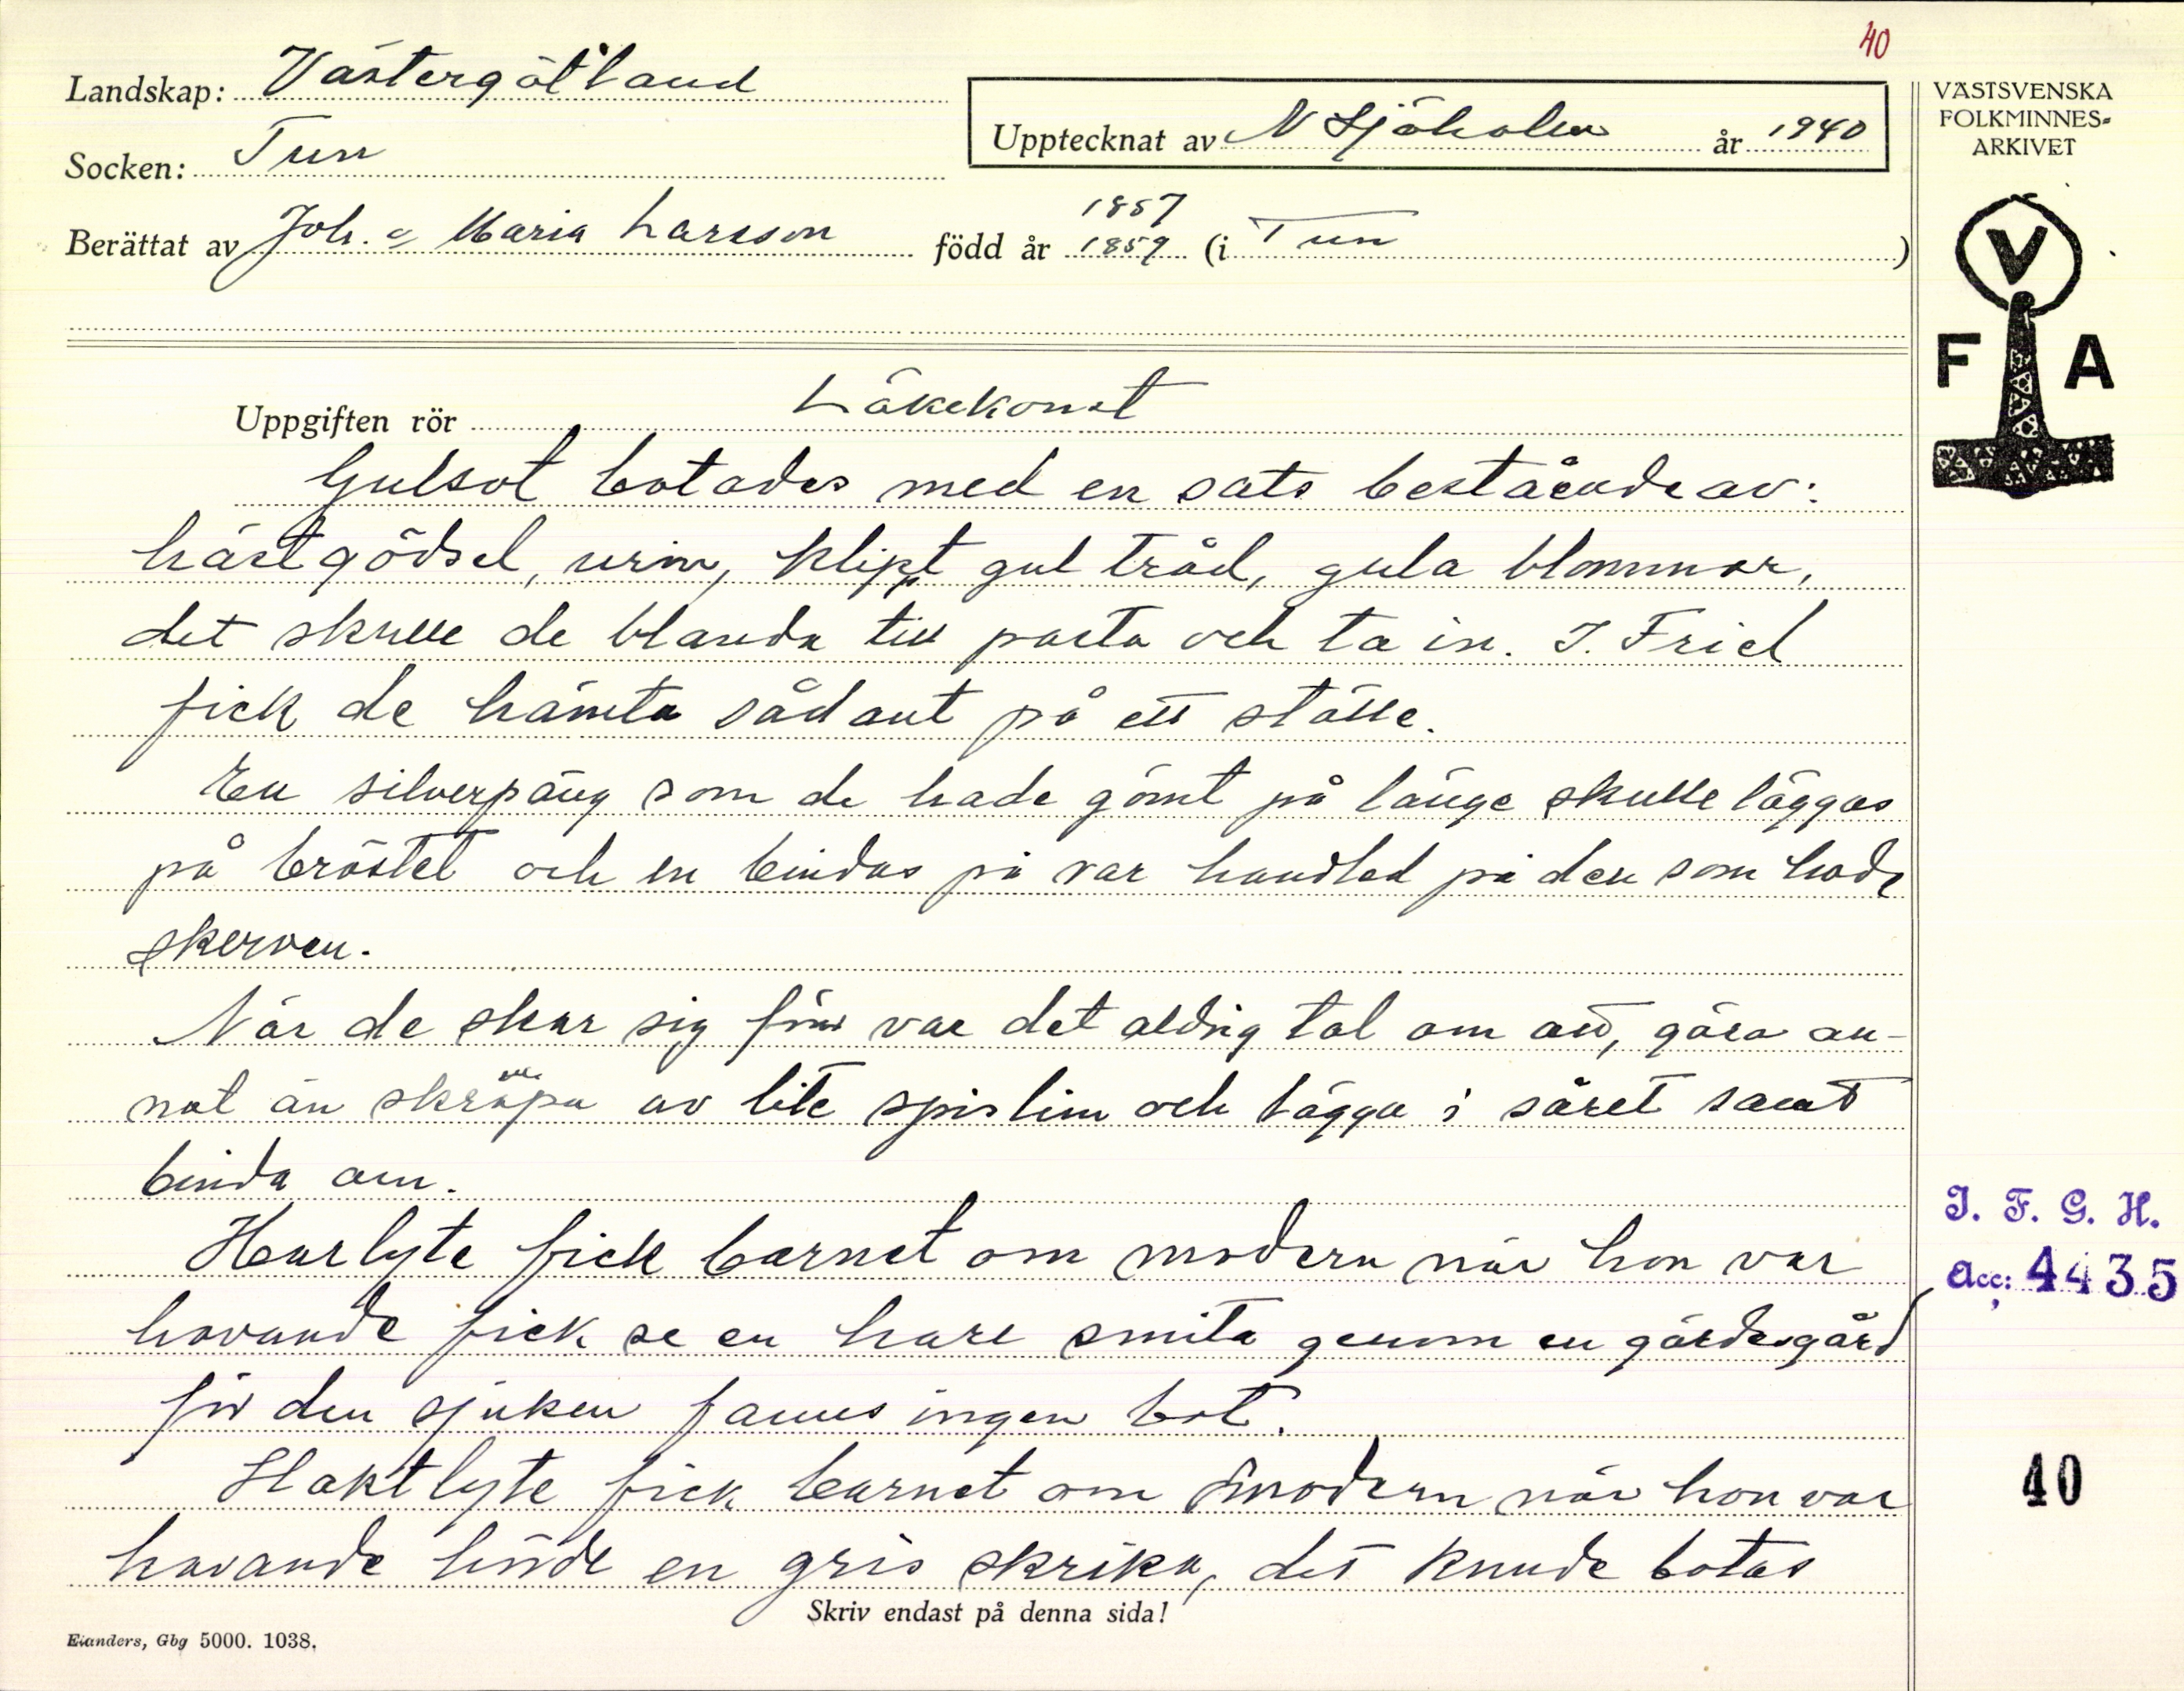 40
Landskap: Västergötland
Upptecknat av N Sjöholm år 1940
VÄSTSVENSKA
FOLKMINNES-
ARKIVET
Socken: Tun
Berättat av Joh. o Maria Larsson född år 1857 1859 (i Tun)
V
F A
Uppgiften rör Läkekonst
Gulsot botades med en sats bestående av:
hästgödsel, urin, klipt gul tråd, gula blommor,
det skulle de blanda till pasta och ta in. I. Friel
fick de hämta sådant på ett ställe.
En silverpäng som de hade gömt på länge skulle läggas
på bröstet och en bindas på var handled på den som hade
skerven.
När de skar sig förr var det aldrig tal om att, göra an-
nat än skrapa av lite spislim och lägga i såret samt
binda om.
Harlyte fick barnet om modern när hon var
havande fick se en hare smita genom en gärdesgård
för den sjuken fanns ingen bot.
Slaktlyte fick barnet om modern när hon var
havande hörde en gris skrika, det kunde botas
I. F. G. H.
Acc: 4435
40
Skriv endast på denna sida!
Elanders, Gbg 5000. 1038.